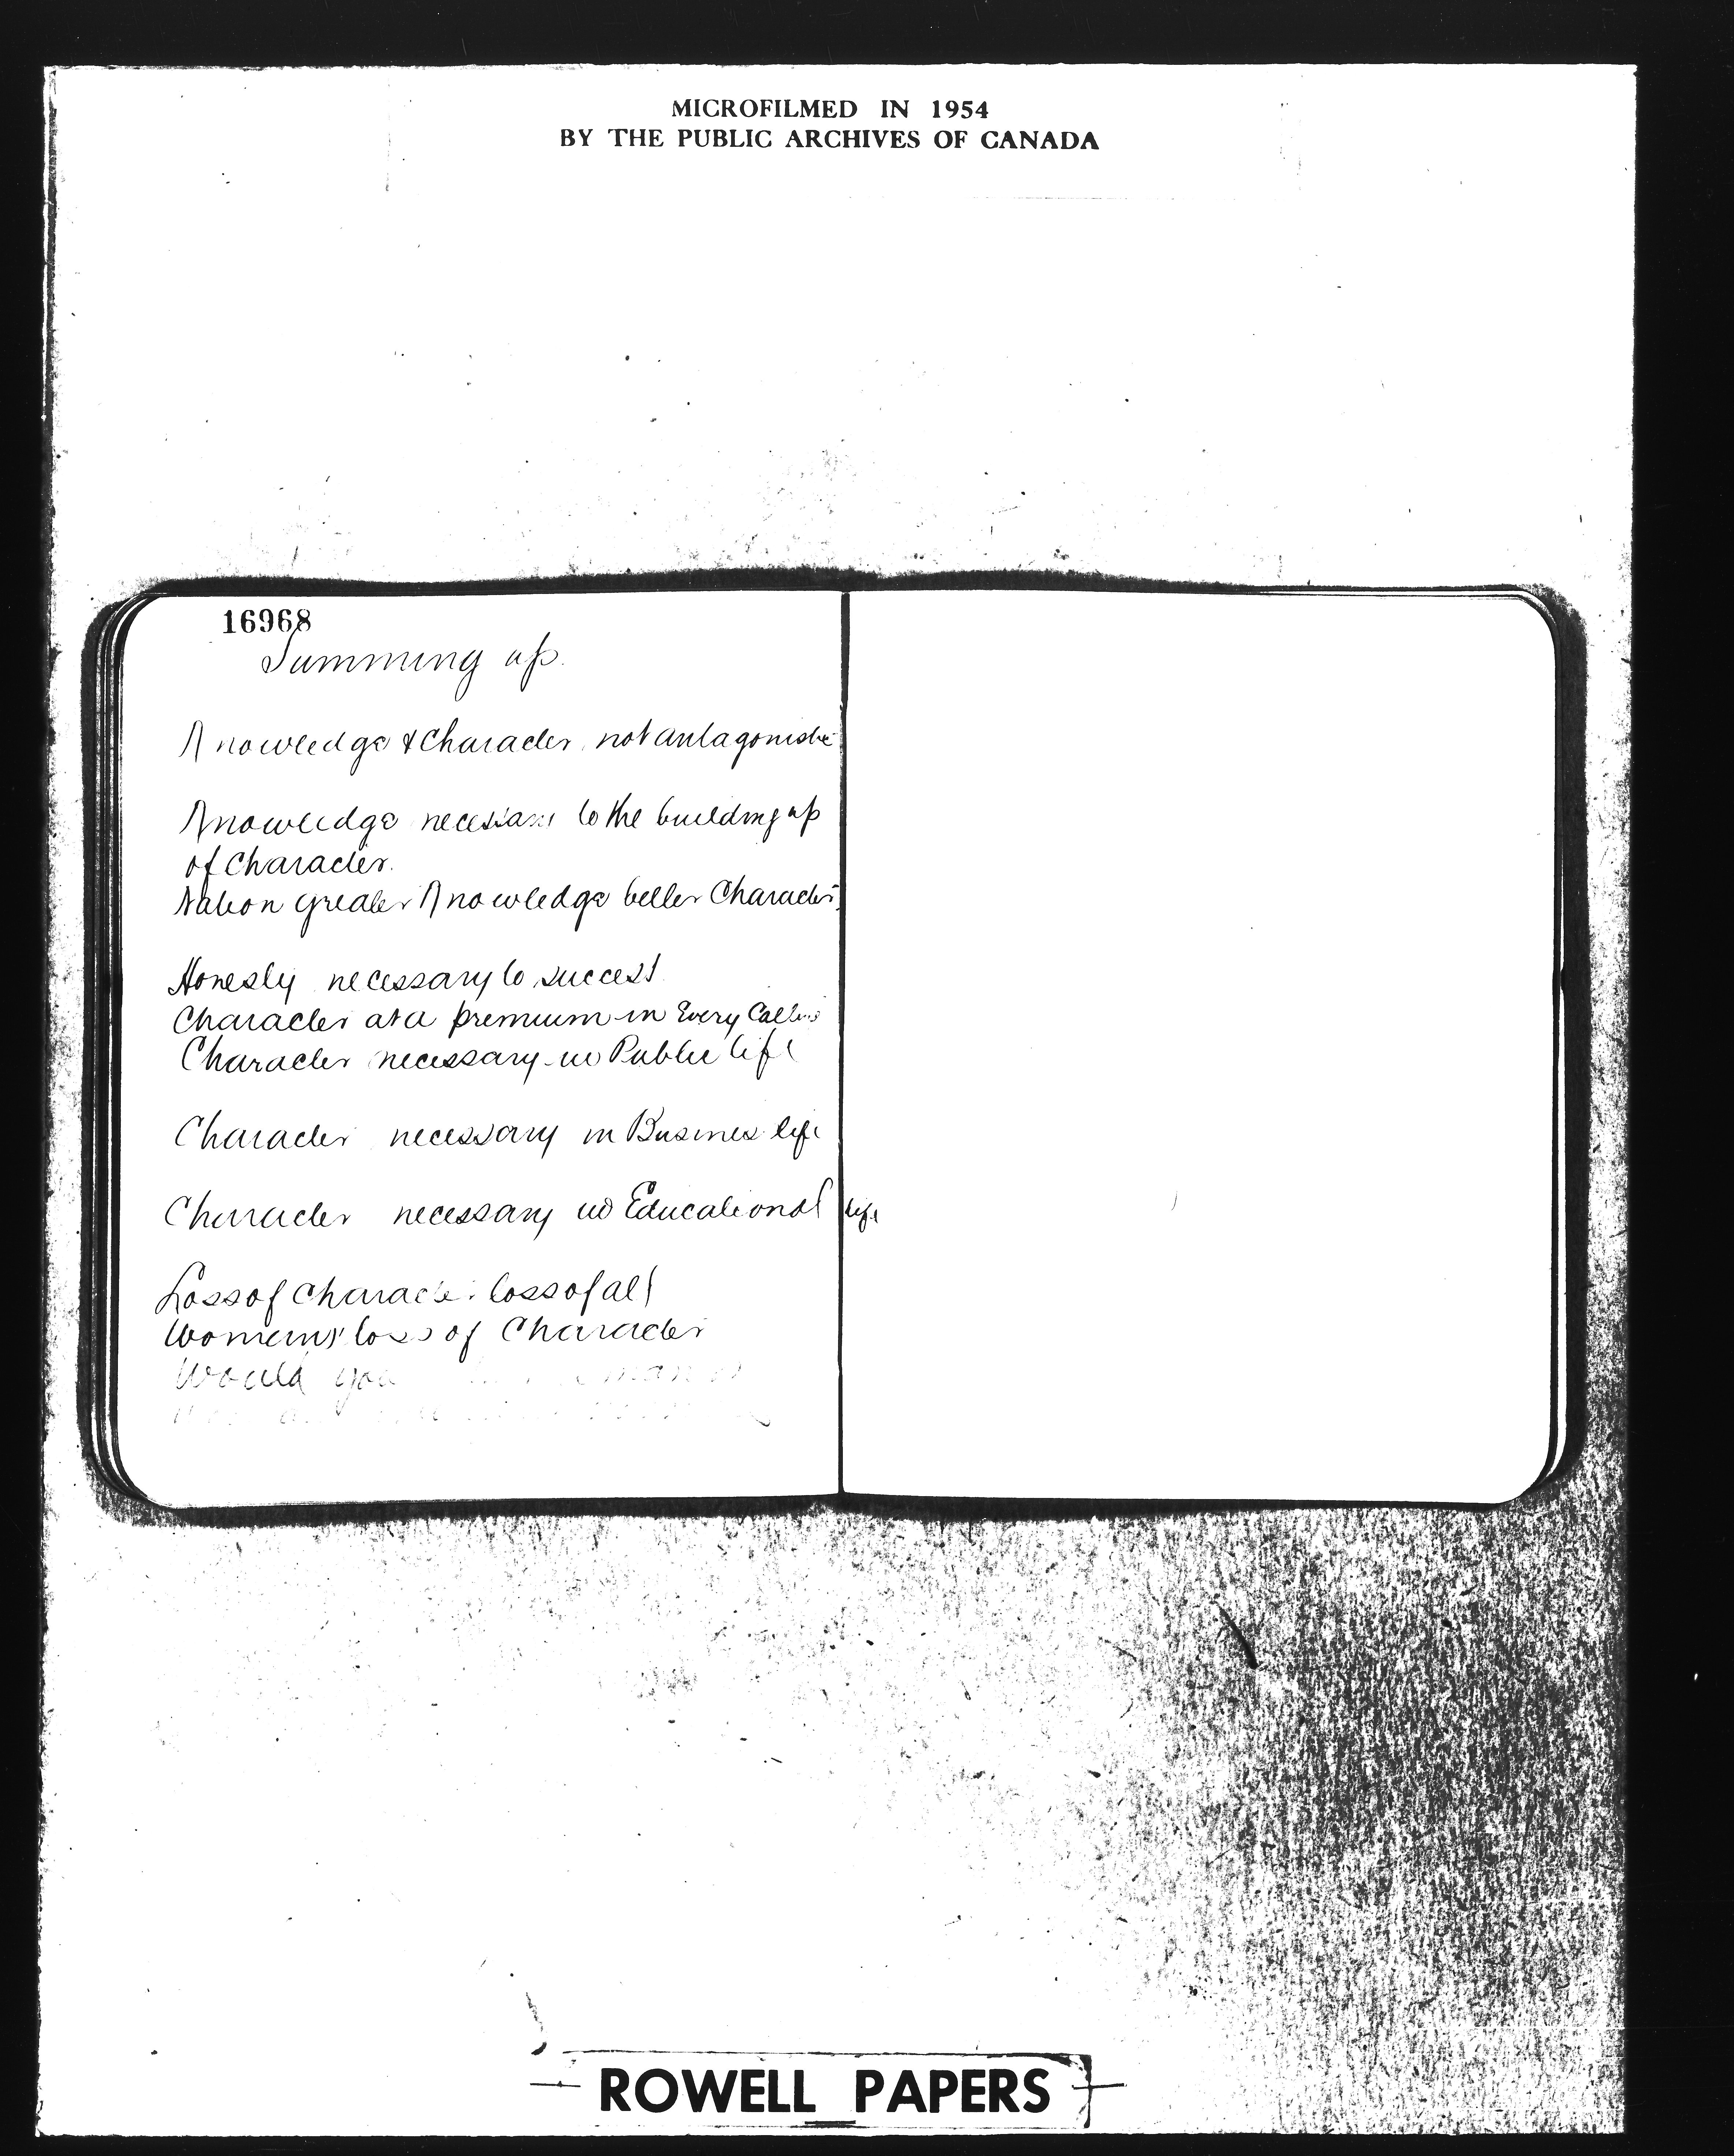 MICROFILMED IN 1954
BY THE PUBLIC ARCHIVES OF CANADA
16968
Summing up.
Knowledge & Character not antagonistic
Knowledge necessary to the building up
of Character.
Nation greater Knowledge better Character
Honesty necessary to success
Character at a premium in Every Calling
Character necessary in Public life
Character necessary in Busines life
Character necessary in Educational life
Loss of Character loss of all
Womans loss of Character
Would you man
ROWELL PAPERS